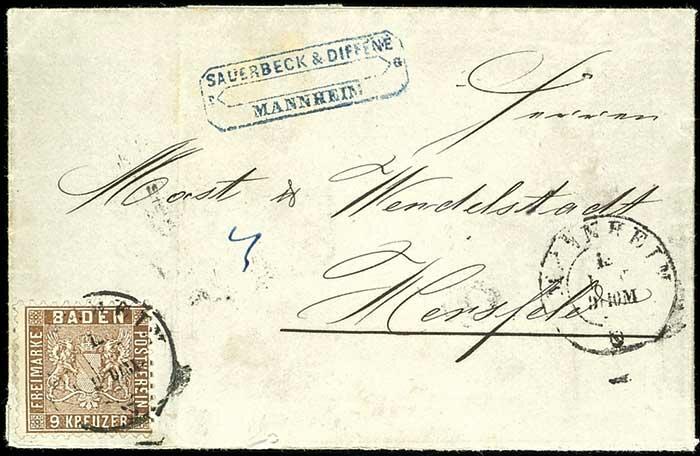 SAUERBECK & DIFFENÉ
MANNHEIM
Herren
Mast & Wendelstadt
Hersfeld
MANNHEIM
BADEN
FREIMARKE
POSTVEREIN
9 KREUZER